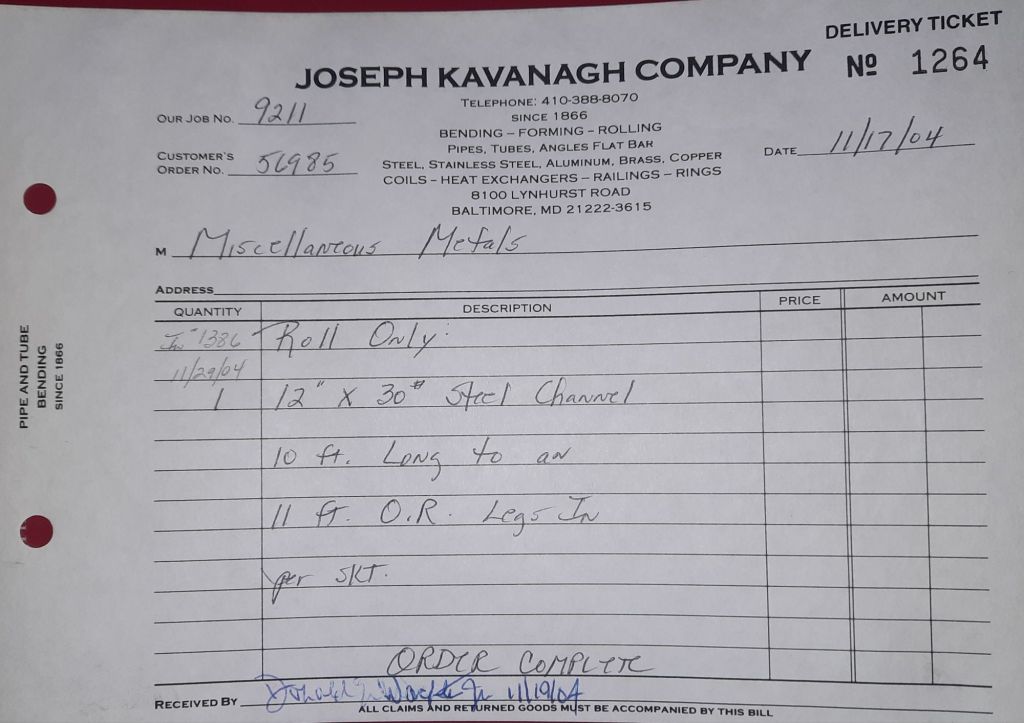 DELIVERY TICKET
JOSEPH KAVANAGH COMPANY
Nº 1264
TELEPHONE: 410-388-8070
SINCE 1866
BENDING – FORMING – ROLLING
PIPES, TUBES, ANGLES FLAT BAR
STEEL, STAINLESS STEEL, ALUMINUM, BRASS, COPPER
COILS – HEAT EXCHANGERS – RAILINGS – RINGS
8100 LYNHURST ROAD
BALTIMORE, MD 21222-3615
OUR JOB NO. 9211
CUSTOMER'S
ORDER NO. 56985
DATE 11/17/04
M Miscellaneous Metals
ADDRESS
QUANTITY DESCRIPTION PRICE AMOUNT
In #1386 Roll Only:
11/29/04
1 12" X 30# Steel Channel
10 ft. Long to an
11 ft. O.R. Legs In
per SKT.
ORDER COMPLETE
RECEIVED BY Donald Jr 11/19/04
ALL CLAIMS AND RETURNED GOODS MUST BE ACCOMPANIED BY THIS BILL
PIPE AND TUBE
BENDING
SINCE 1866